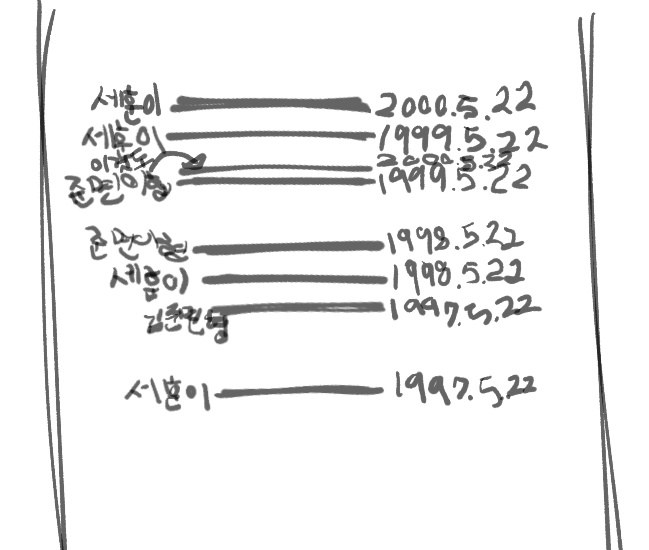 세훈이 2000.5.22
세훈이 1999.5.22
2000.5.22
준면이형 1999.5.22
준면이형 1998.5.22
세훈이 1998.5.22
김준면형 1997.5.22
세훈이 1997.5.22